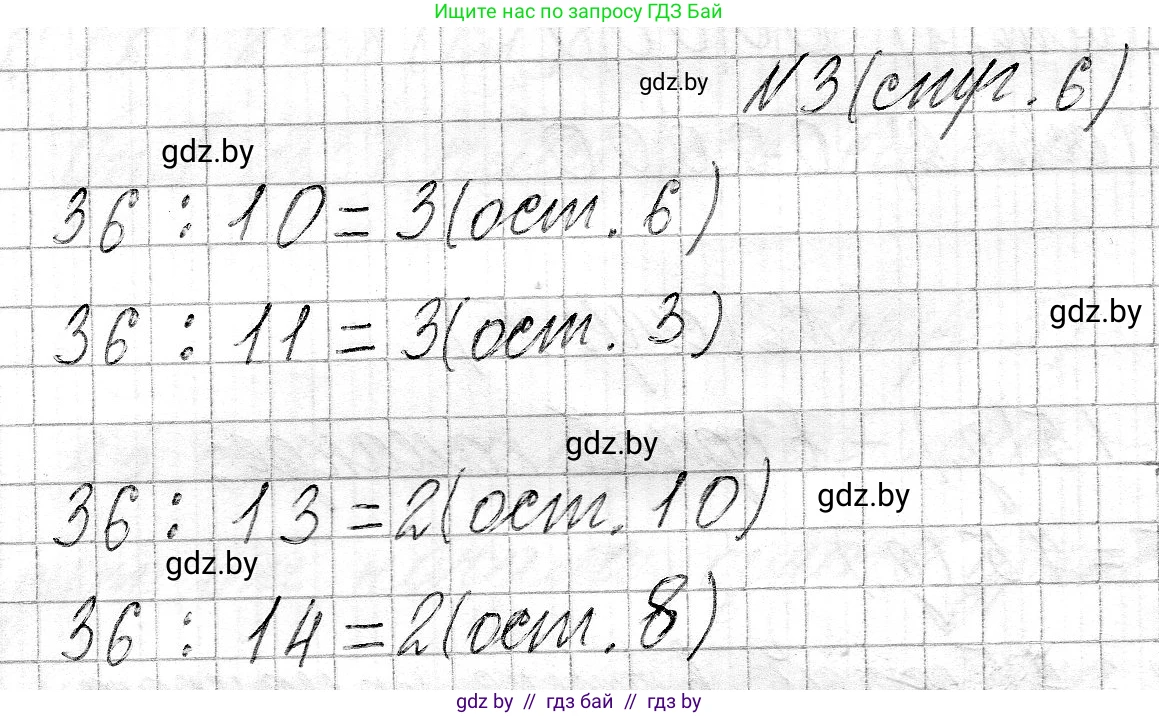 Ищите нас по запросу ГДЗ Бай
gdz.by №3(стр. 6)
gdz.by
36 : 10 = 3(ост. 6)
36 : 11 = 3(ост. 3)
gdz.by
gdz.by
36 : 13 = 2(ост. 10)
gdz.by
gdz.by
36 : 14 = 2(ост. 8)
gdz.by // гдз бай // гдз by